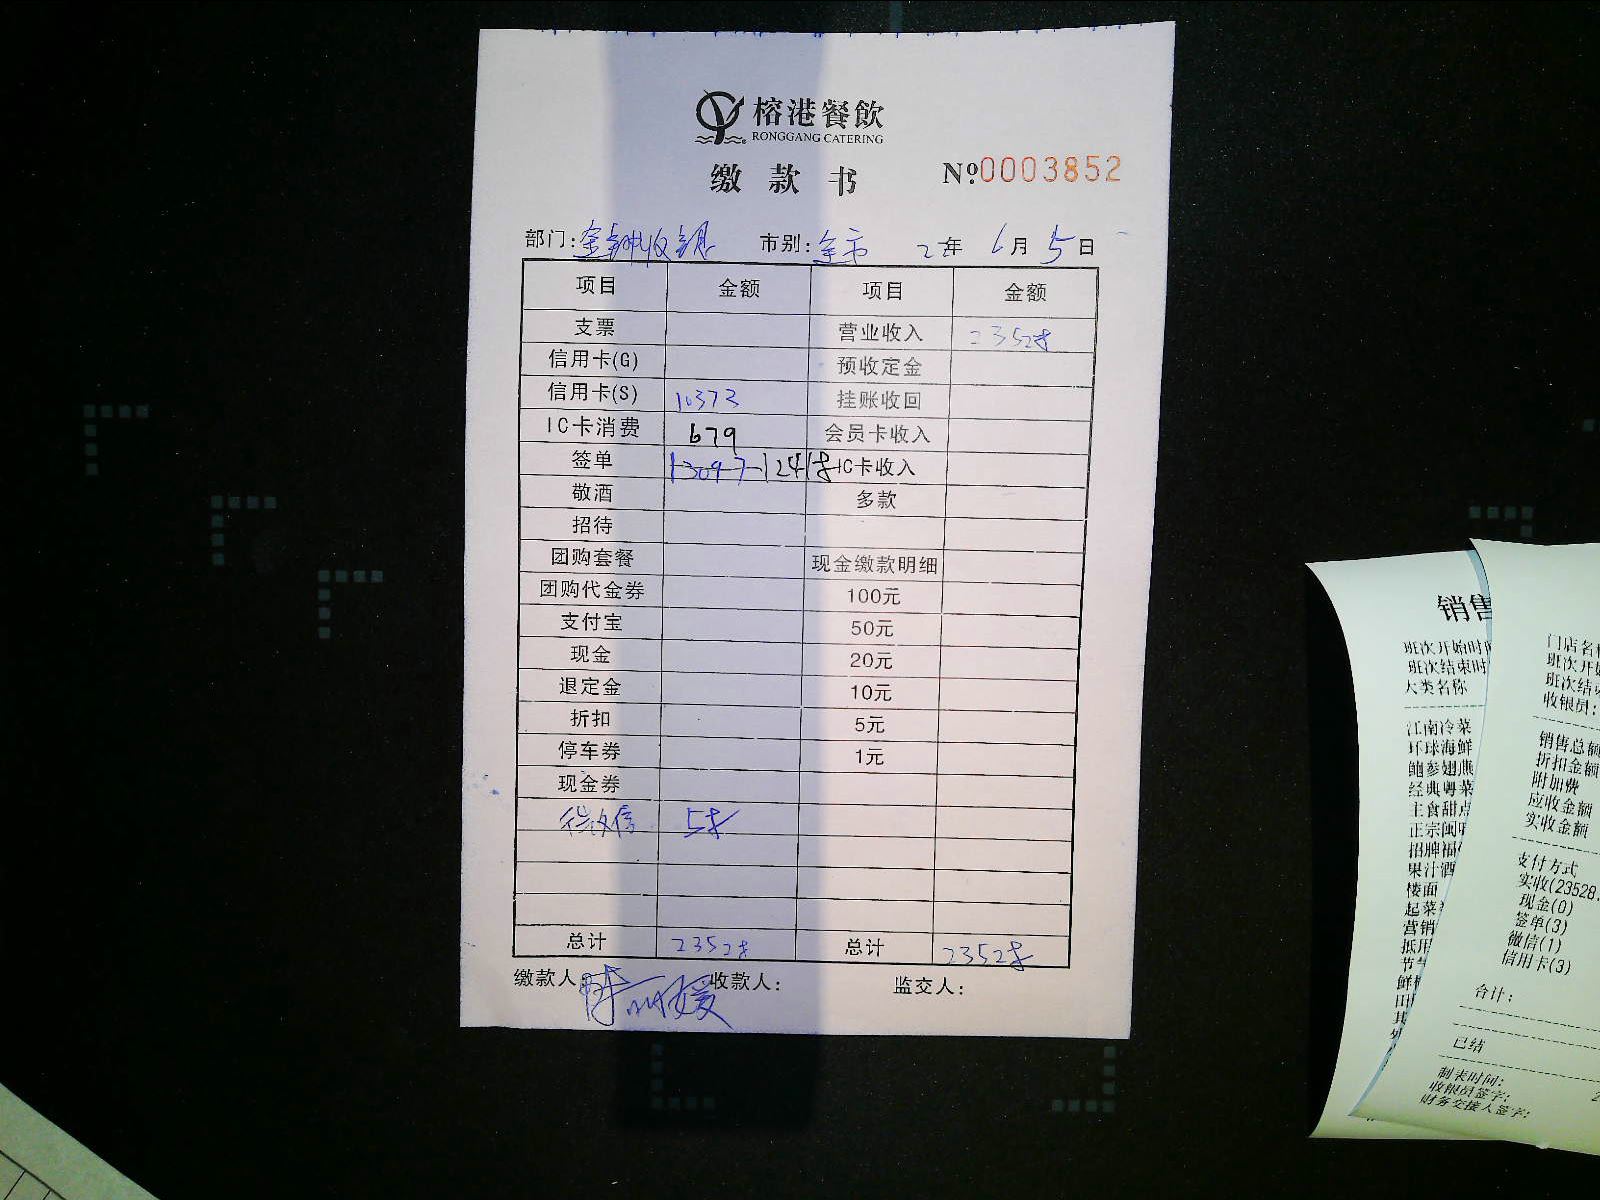 榕港餐飲
RONGGANG CATERING
缴款书 Nº0003852
部门: 收银 市别:全市 22年 6月 5日
项目 金额 项目 金额
支票 营业收入 23528
信用卡(G) 预收定金
信用卡(S) 10373 挂账收回
IC卡消费 679 会员卡收入
签单 13097-12418 IC卡收入
敬酒 多款
招待
团购套餐 现金缴款明细
团购代金券 100元
支付宝 50元
现金 20元
退定金 10元
折扣 5元
停车券 1元
现金券
微信 58
总计 23528 总计 23528
缴款人: 收款人: 监交人:
销售
班次开始时间
班次结束时
大类名称
江南冷菜
环球海鲜
鲍参翅燕
经典粤菜
主食甜点
正宗闽味
招牌福
果汁酒
楼面
起菜
营销
抵用
节气
鲜
田
其
外
门店名称
班次开始
班次结束
收银员:
销售总额
折扣金额
附加费
应收金额
实收金额
支付方式
实收(23528.
现金(0)
签单(3)
微信(1)
信用卡(3)
合计:
已结
制表时间: 2
收银员签字:
财务交接人签字: